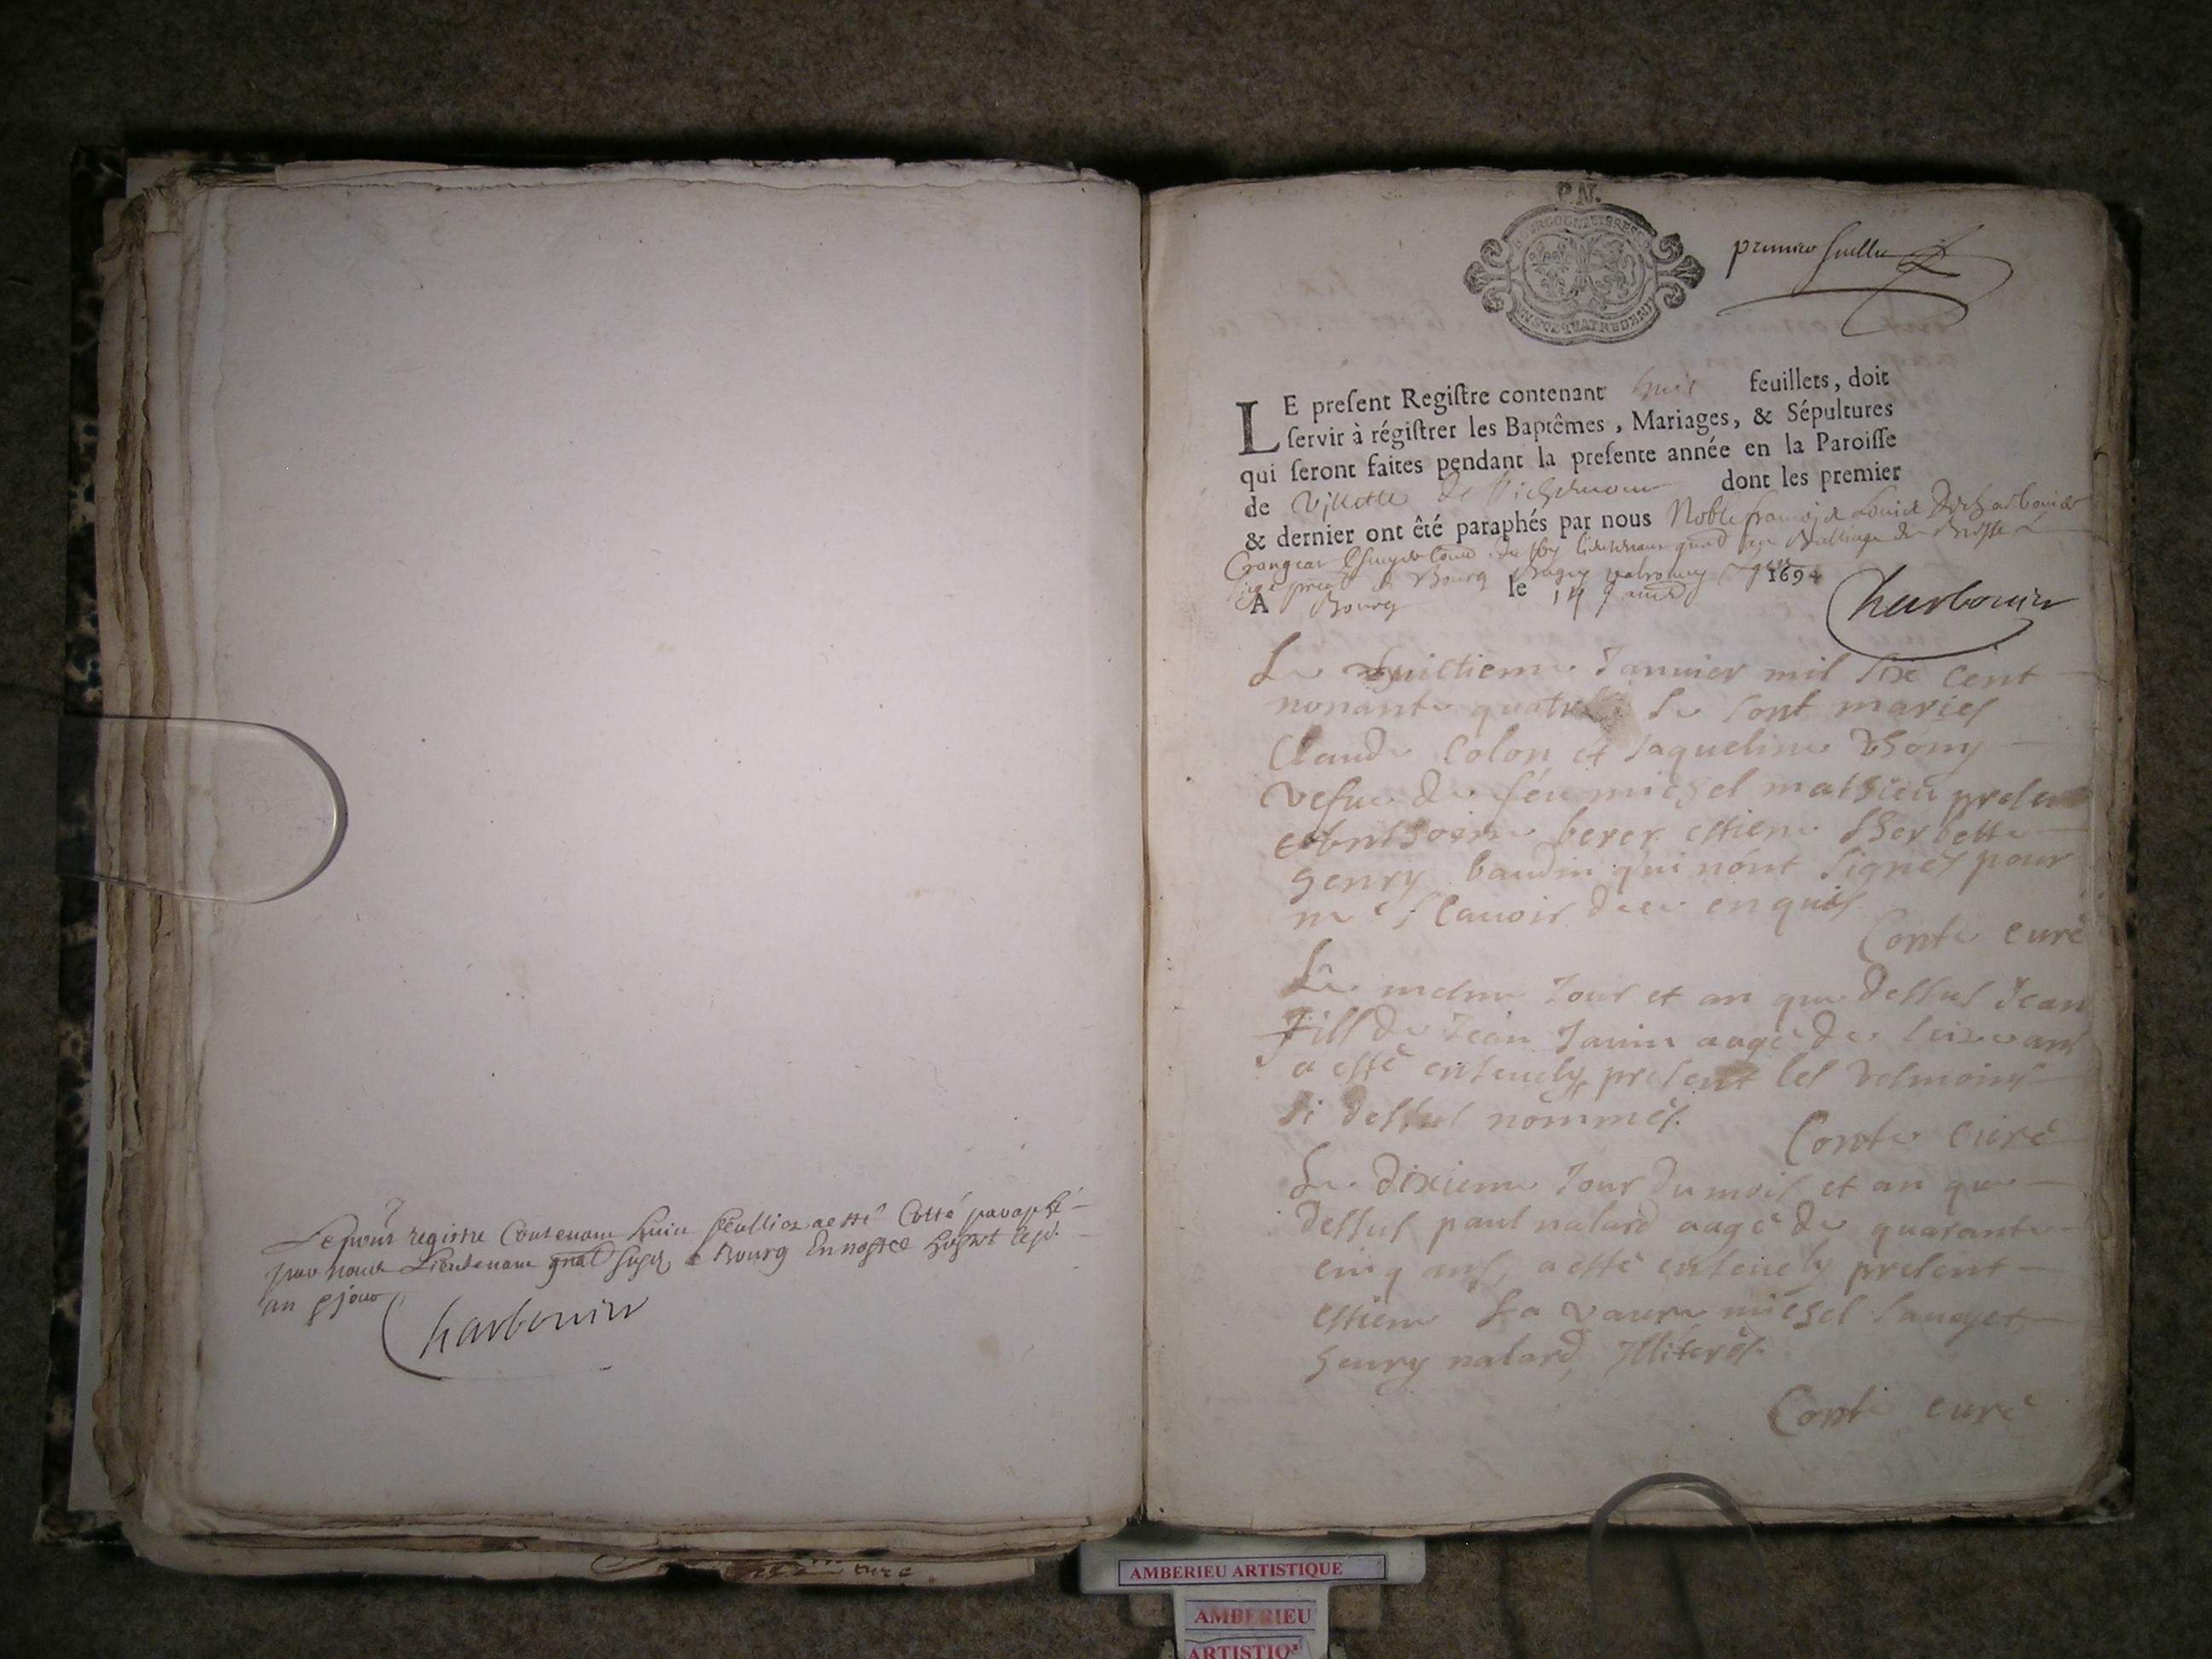 Le pnt registre Contenant huict feuilliez a esté Cotté paraphé
par nous Lieutenant gnal a Bourg
an & jour
Charbonier
P.N.
BOURGOGNE ET BRESSE
UN SOL QUATRE DEN
premier feuillet
LE preſent Regiſtre contenant huit feuillets, doit
ſervir à régiſtrer les Baptêmes, Mariages, & Sépultures
qui ſeront faites pendant la preſente année en la Paroiſſe
de Villette de Richemont dont les premier
& dernier ont êté paraphés par nous Noble françois Louis De Charbonier
Crangeac Lieutenant gnal au Balliage de Bresse
Bourg Bugey valromey
A Bourg le 1694
Charbonier
Le huictieme Januier mil six cent
nonante quatre se sont mariés
Claude Colon et Jaqueline Thomy
vefue de feu michel mathieu present
anthoine berer estiene Sherbette
henry baudin qui nont signés pour
ne sçauoir de ce enquis
Conte curé
Le mesme Jour et an que dessus Jean
fills de Jean Janin aagé de seize ans
a esté enseuely present les tesmoins
si dessus nommés.
Conte Curé
Le dixieme Jour du mois et an que
dessus paul nalard aagé de quarante
cinq ans, a esté enseuely present
estiene La vaure michel sauget,
henry nalard, Illiterés.
Conte curé
curé
AMBERIEU ARTISTIQUE
AMBERIEU
ARTISTIQ